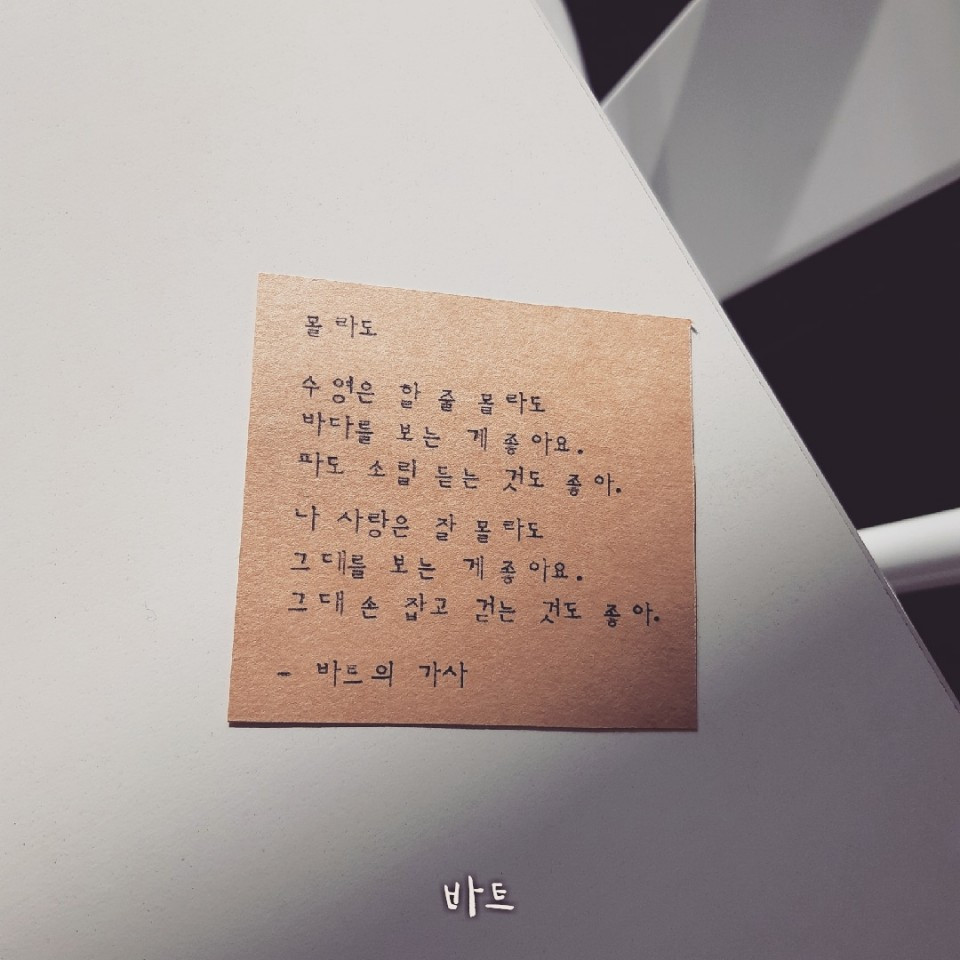 몰라도
수영은 할 줄 몰라도
바다를 보는 게 좋아요.
파도 소릴 듣는 것도 좋아.
나 사랑은 잘 몰라도
그대를 보는 게 좋아요.
그대 손 잡고 걷는 것도 좋아.
- 바트의 가사
바트